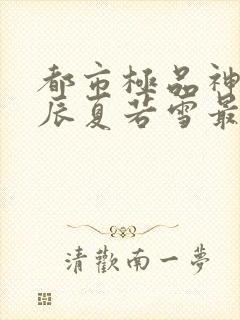 都市極品神
辰夏若雪最
清歡南一夢